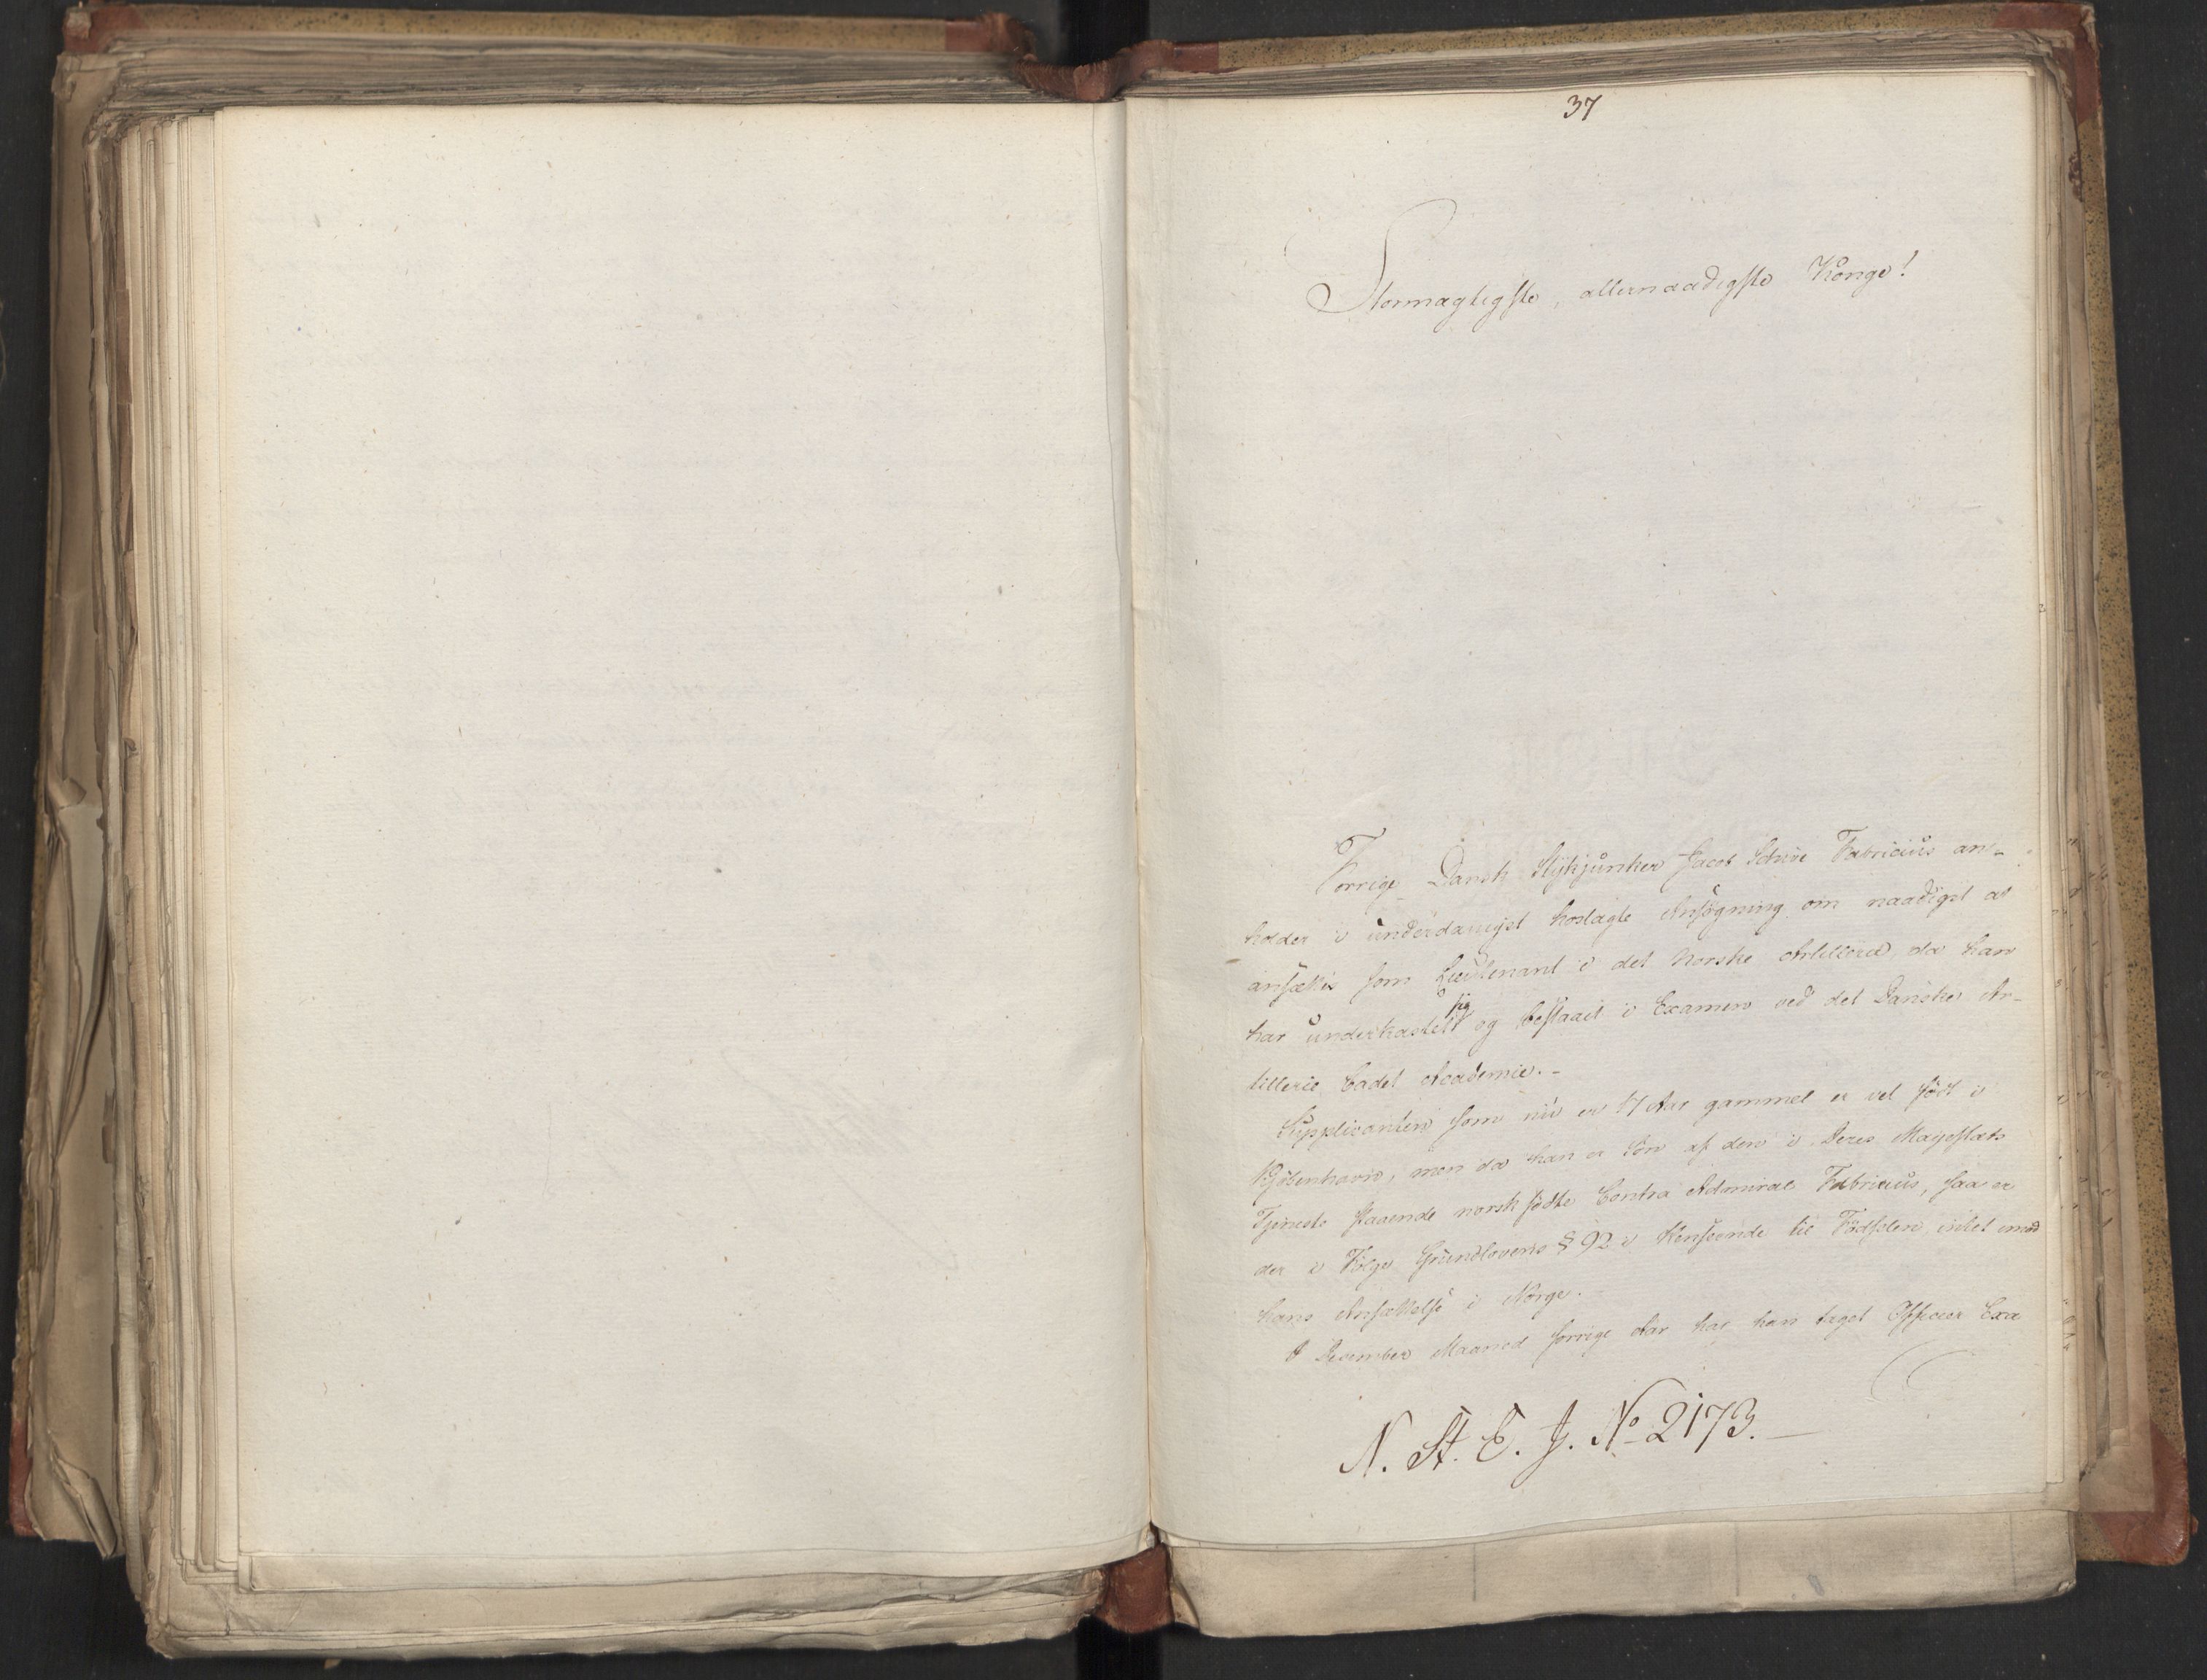 37
Stormægtigste, allernaadigste Konge!
Forrige Dansk Stykjunker Jacob Schive Fabricius an-
holder i underdanigst hoslagte Ansögning om naadigst at
ansættes som Lieutenant i det Norske Artillerie, da han
har underkastet sig og bestaaet i Examen ved det Danske Ar-
tillerie Cadet Academie.-
Supplicanten som nu er 17 Aar gammel er vel födt i
Kjöbenhavn, men da han er Sön af den i Deres Majestæts
Tjeneste staaende norsk födte Contra Admiral Fabricius, saa er
der i Fölge Grundlovens § 92 i Henseende til Födselen intet imod
hans Ansættelse i Norge.
I December Maaned forrige Aar har han taget Officeer Exa
N. St. E. J. No 2173.-